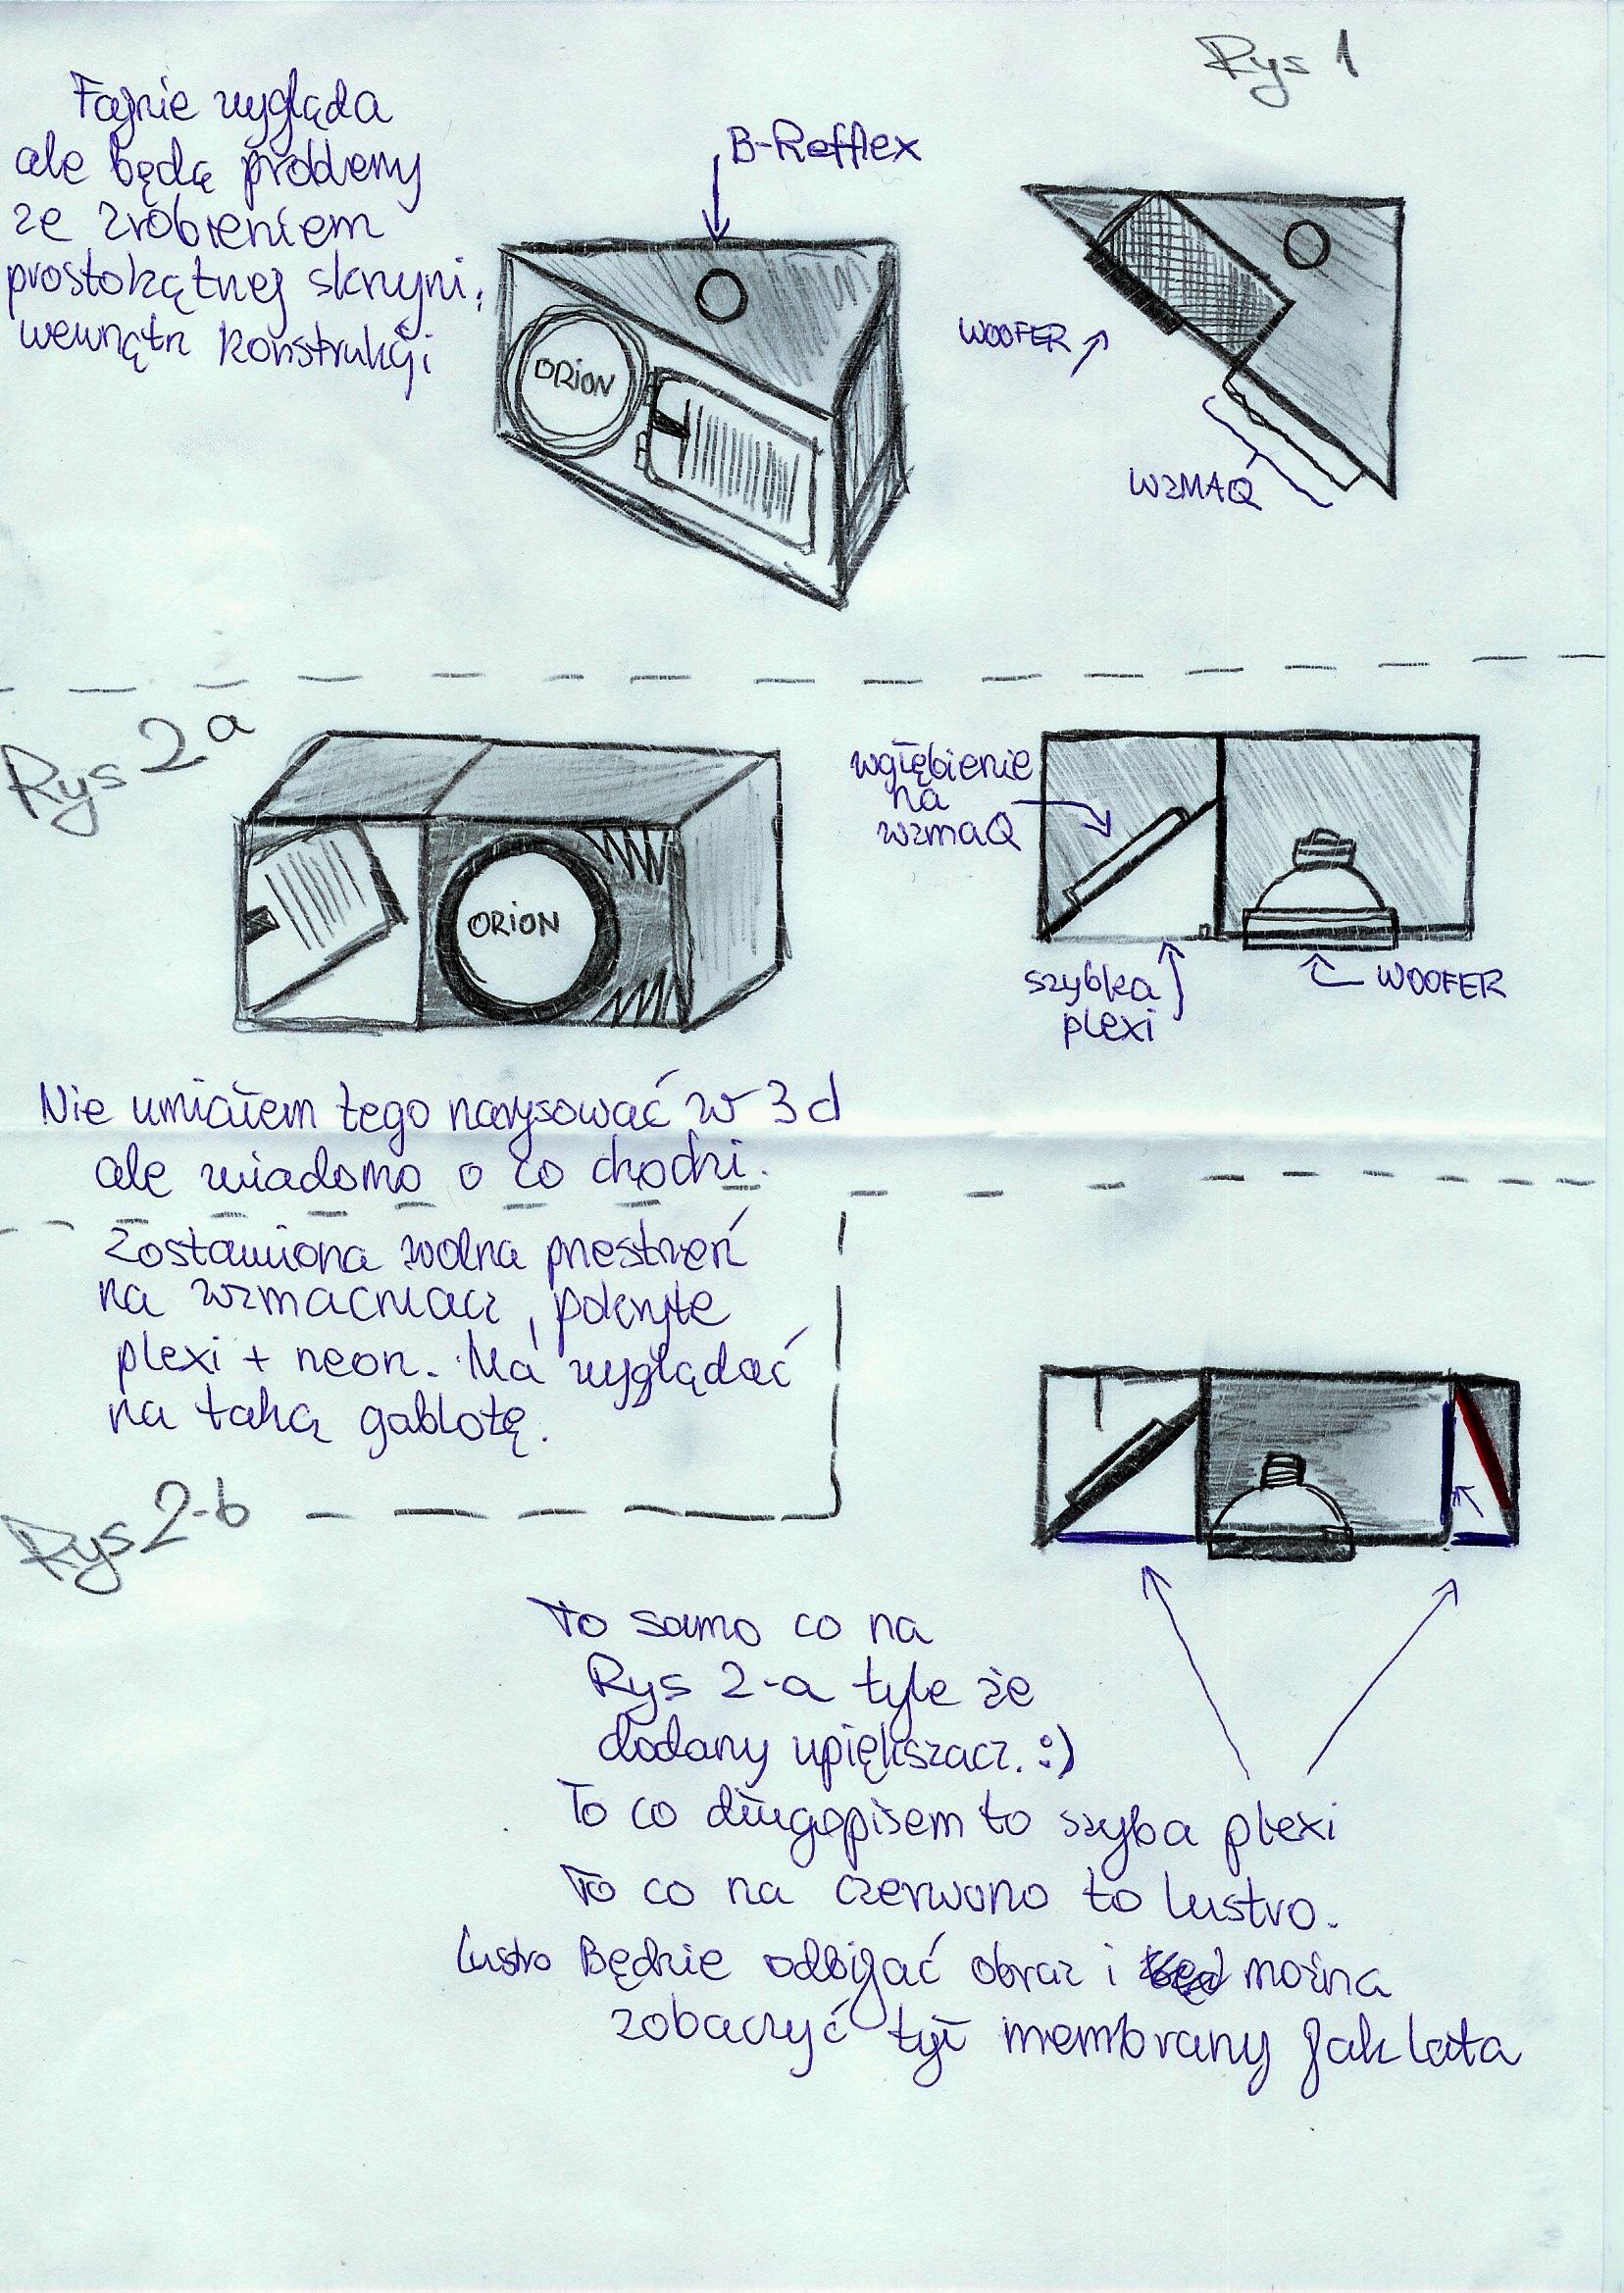 Rys 1
Fajnie wygląda
ale będą problemy
ze zrobieniem
prostokątnej skrzyni,
wewnątrz konstrukcji
B-Refflex
ORION
WOOFER
WZMAQ
Rys 2a
ORION
wgłębienie
na
wzmaQ
szybka
plexi
WOOFER
Nie umiałem tego narysować w 3d
ale wiadomo o co chodzi.
Zostawiona wolna przestrzeń
na wzmacniacz, pokryte
plexi + neon. Ma wyglądać
na taką gablotę.
Rys 2-b
To samo co na
Rys 2-a tyle że
dodany upiększacz. :)
To co długopisem to szyba plexi
To co na czerwono to lustro.
Lustro Będzie odbijać obraz i można
zobaczyć tył membrany jak lata